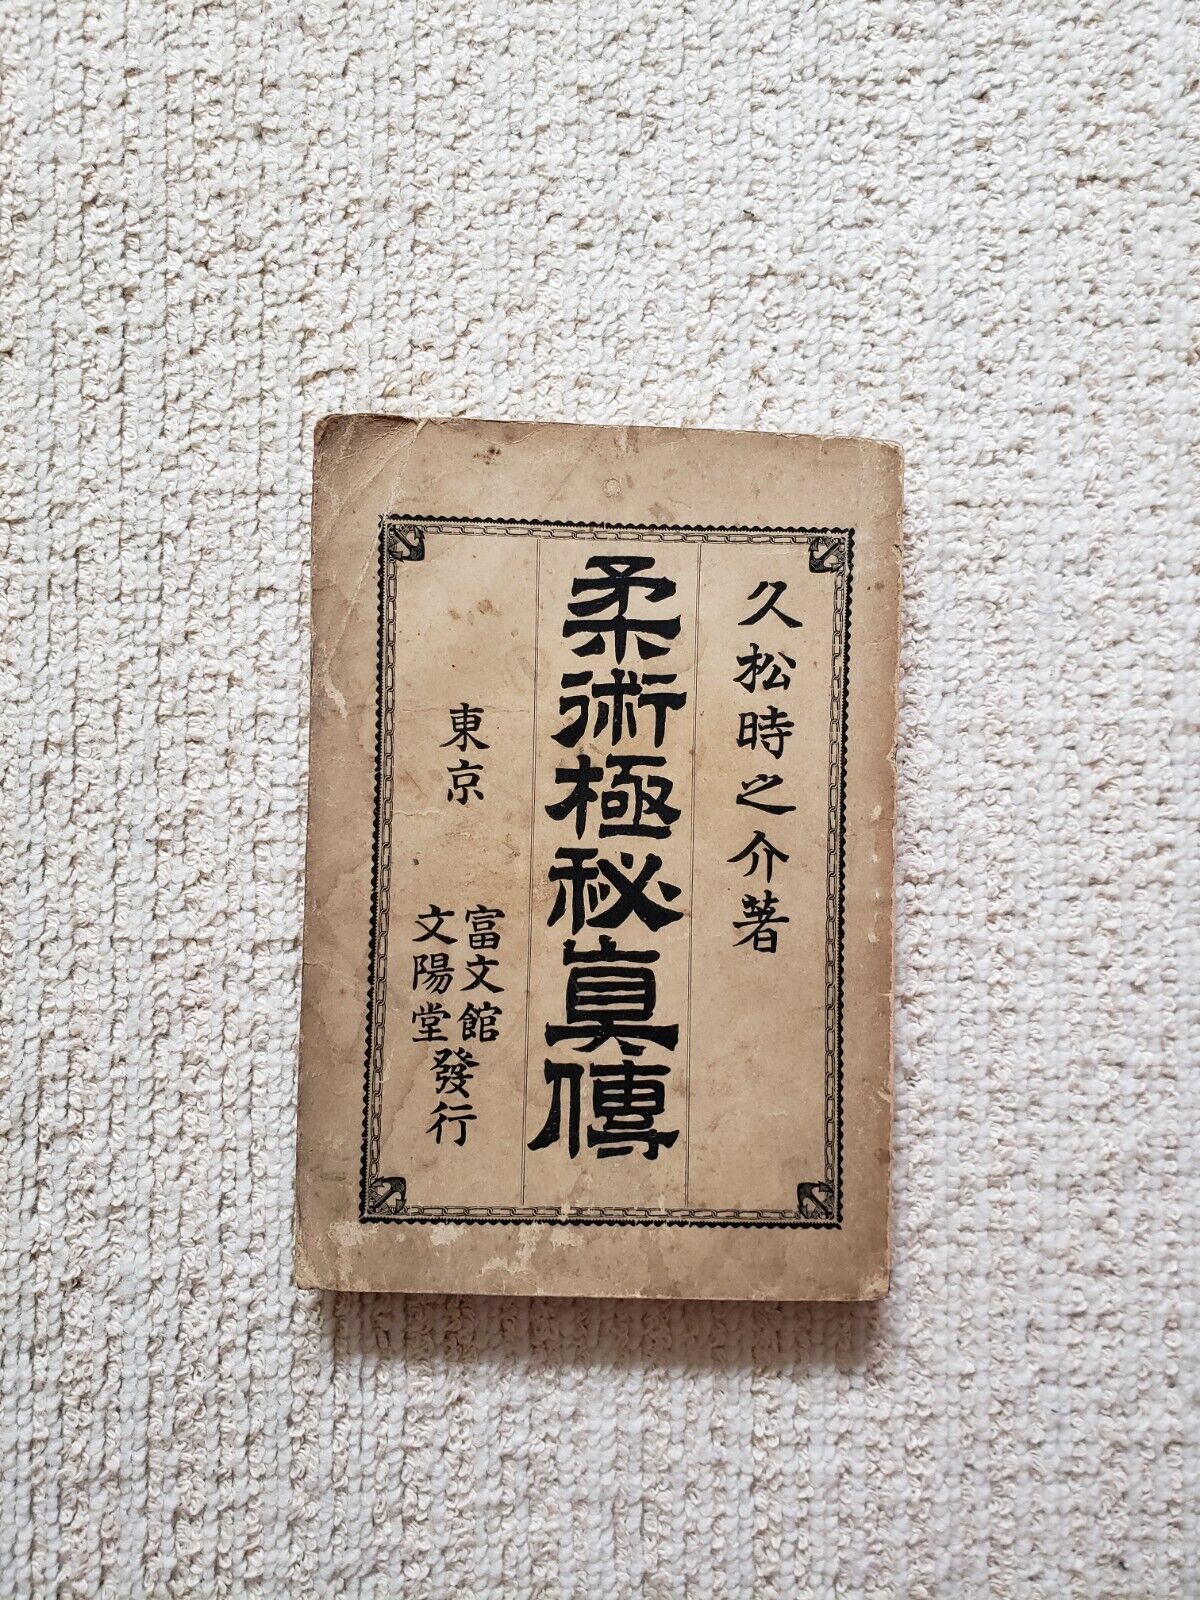 久松時之介著
柔術極秘真傳
東京
富文館
文陽堂
發行